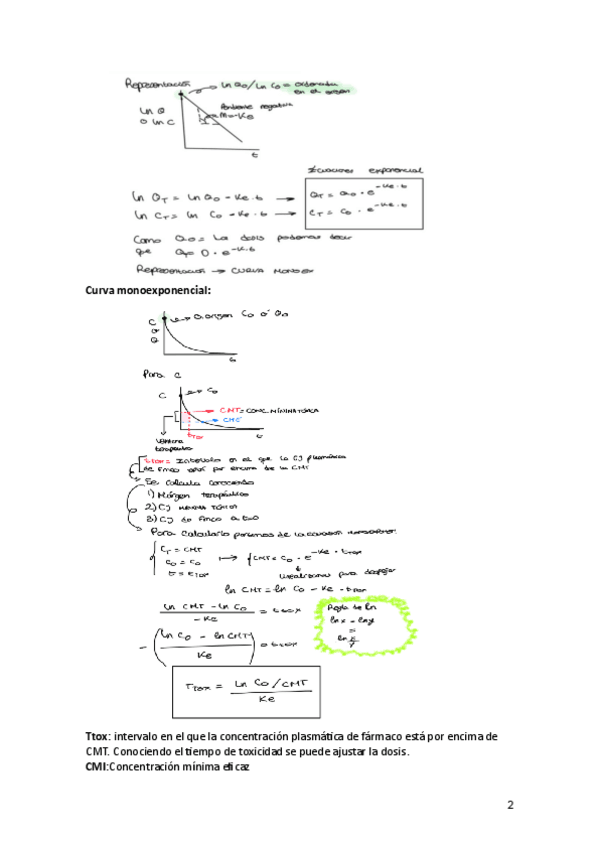 Representación → ln Q0/ln C0 = ordenada
en el origen
ln Q
o ln C
Pendiente negativa
m = -Ke
t
Ecuaciones exponencial
ln QT = ln Q0 - Ke·t → QT = Q0 · e^-Ke·t
ln CT = ln C0 - Ke·t → CT = C0 · e^-Ke·t
Como Q0 = la dosis podemos decir
que Q = D · e^-Ke·t
Representación → CURVA MONOEX
Curva monoexponencial:
C
o
Q
origen C0 ó Q0
t
Para C
C
C0
CMT = CONC. MÍNIMA TÓXICA
CME
ttox
t
Ventana
terapéutica
ttox = Intervalo en el que la C] plasmática
de fmco está por encima de la CMT
Se calcula conociendo
1) Márgen terapéutico
2) C] mínima tóxica
3) C] de fmco a t=0
Para calcularlo partimos de la ecuación
CT = CMT
C0 = C0
t = ttox
→ CMT = C0 · e^-Ke·ttox
linealizamos para despejar
ln CMT = ln C0 - Ke · ttox
ln CMT - ln C0 / -Ke = ttox
Regla de ln
ln x - ln y
=
ln x/y
- (ln C0 - ln CMT / Ke) = ttox
Ttox = ln C0/CMT / Ke
Ttox: intervalo en el que la concentración plasmática de fármaco está por encima de
CMT. Conociendo el tiempo de toxicidad se puede ajustar la dosis.
CMI:Concentración mínima eficaz
2